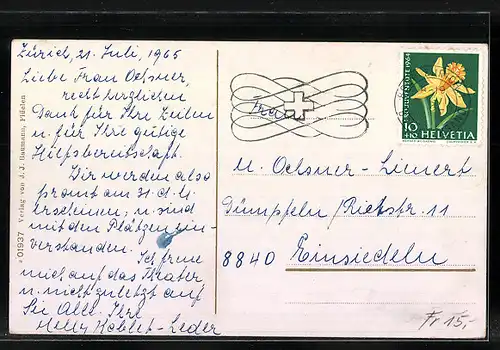 Zürich, 21. Juli, 1965
Liebe Frau Ochsner,
recht herzlichen
Dank für Ihre Zeilen
u. für Ihre gütige
Hilfsbereitschaft.
Wir werden also
promt am 31. d. M.
erscheinen, u. sind
mit den Plätzen ein-
verstanden.
Ich freue
mich auf das Theater
u. nicht zuletzt auf
Sie Alle. Ihre
Melly Leder
* 01937 Verlag von J. J. Baumann, Fideley
Frau
PRO JUVENTUTE 1964
10
+10
HELVETIA
M. Ochsner-Lienert
Dümpfeln/Rietstr. 11
8840 Einsiedeln
Fr 15,-